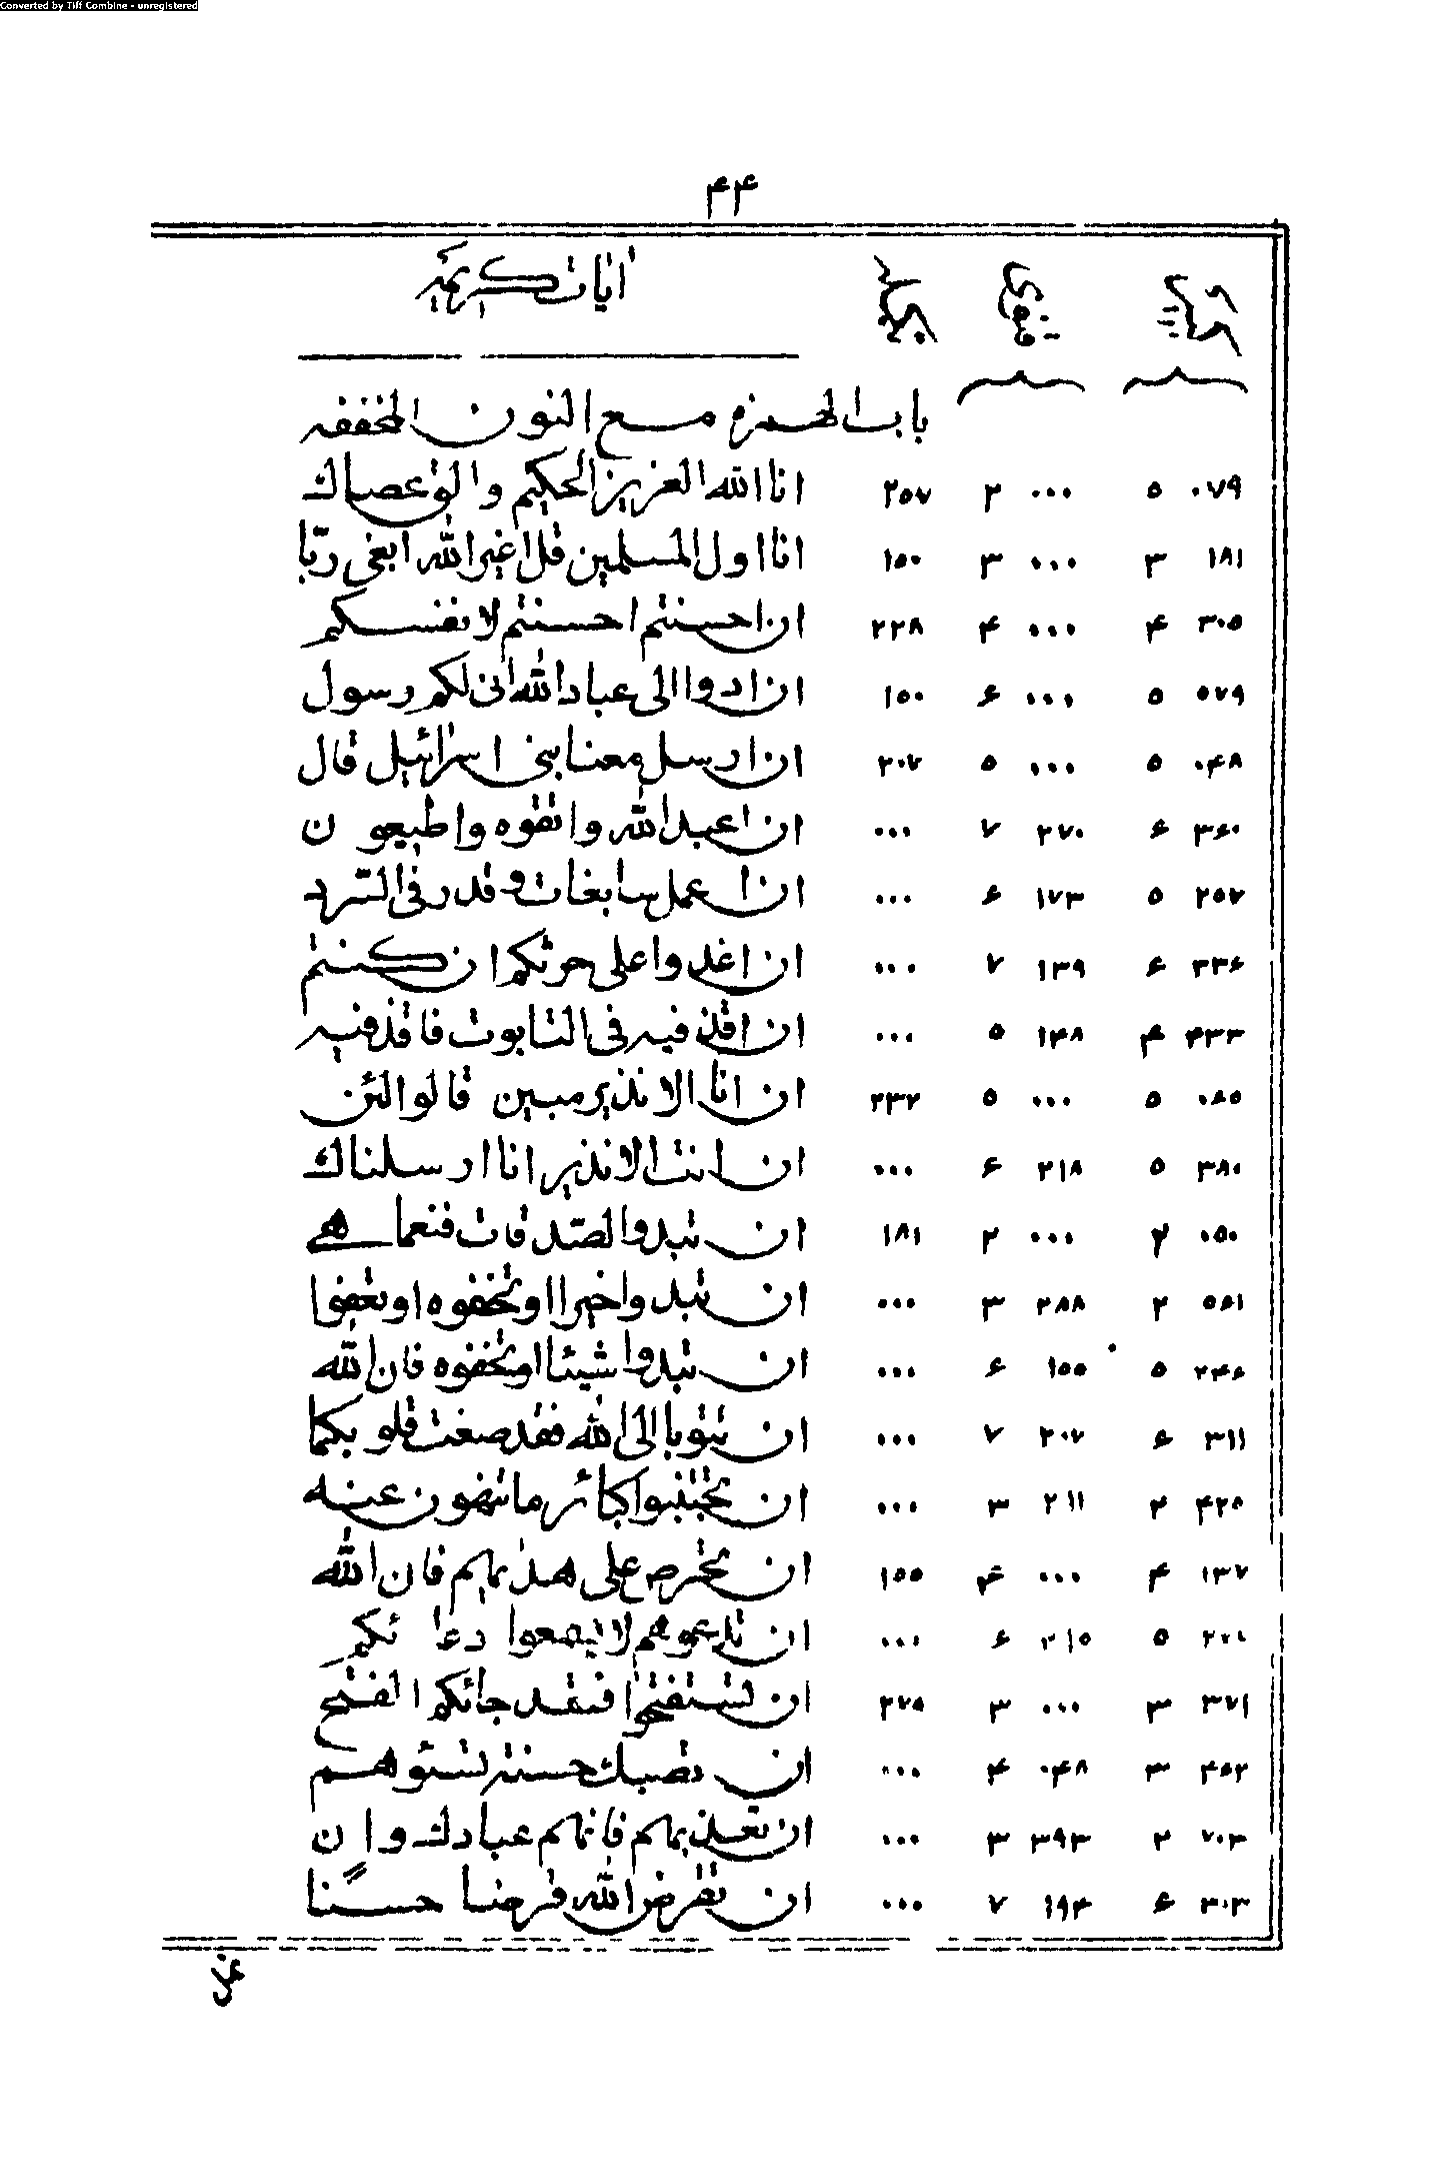 Converted by Tiff Combine - unregistered
۴۴
آیات کریمه
باب الهمزه مع النون المخففه
۰۷۹ ۵ ۰۰۰ ۲ ۲۵۷ انا الله العزیز الحکیم والق عصاك
۱۸۱ ۳ ۰۰۰ ۳ ۱۵۰ انا اول المسلمین قل اغیر الله ابغی ربّا
۳۰۵ ۴ ۰۰۰ ۴ ۲۲۸ ان احسنتم احسنتم لانفسکم
۵۷۹ ۵ ۰۰۰ ۶ ۱۵۰ ان ادوا الی عباد الله انی لکم رسول
۰۴۸ ۵ ۰۰۰ ۵ ۲۰۷ ان ارسل معنا بنی اسرائیل قال
۳۶۰ ۶ ۲۷۰ ۷ ۰۰۰ ان اعبد الله واتقوه واطیعون
۲۵۷ ۵ ۱۷۳ ۶ ۰۰۰ ان اعمل سابغات وقدر فی السّرد
۳۳۶ ۶ ۱۳۹ ۷ ۰۰۰ ان اغدوا علی حرثکم ان کنتم
۴۳۳ ۴ ۱۴۸ ۵ ۰۰۰ ان اقذفیه فی التابوت فاقذفیه
۰۸۵ ۵ ۰۰۰ ۵ ۲۳۲ ان انا الا نذیر مبین قالوا لئن
۳۸۰ ۵ ۲۱۸ ۶ ۰۰۰ ان انت الا نذیر انا ارسلناك
۰۵۰ ۲ ۰۰۰ ۲ ۱۸۱ ان تبدوا لصّدقات فنعما هی
۵۸۱ ۲ ۲۸۸ ۳ ۰۰۰ ان تبدوا خیرا او تخفوه او تعفوا
۲۴۶ ۵ ۱۵۵ ۶ ۰۰۰ ان تبدوا شیئا او تخفوه فان الله
۳۱۱ ۶ ۲۰۷ ۷ ۰۰۰ ان تتوبا الی الله فقد صغت قلوبکما
۴۲۵ ۲ ۲۱۱ ۳ ۰۰۰ ان تجتنبوا کبائر ما تنهون عنه
۱۳۷ ۴ ۰۰۰ ۴ ۱۵۵ ان تحرص علی هدیهم فان الله
۵ ۲۱۵ ۶ ۰۰۰ ان تدعوهم لا یسمعوا دعائکم
۳۷۱ ۳ ۰۰۰ ۳ ۲۷۵ ان تستفتحوا فقد جائکم الفتح
۴۵۲ ۳ ۰۴۸ ۴ ۰۰۰ ان تصبك حسنة تسئوهم
۷۰۳ ۲ ۳۹۳ ۳ ۰۰۰ ان تعذبهم فانهم عبادك وان
۳۰۳ ۶ ۱۹۴ ۷ ۰۰۰ ان تقرض الله قرضا حسنًا